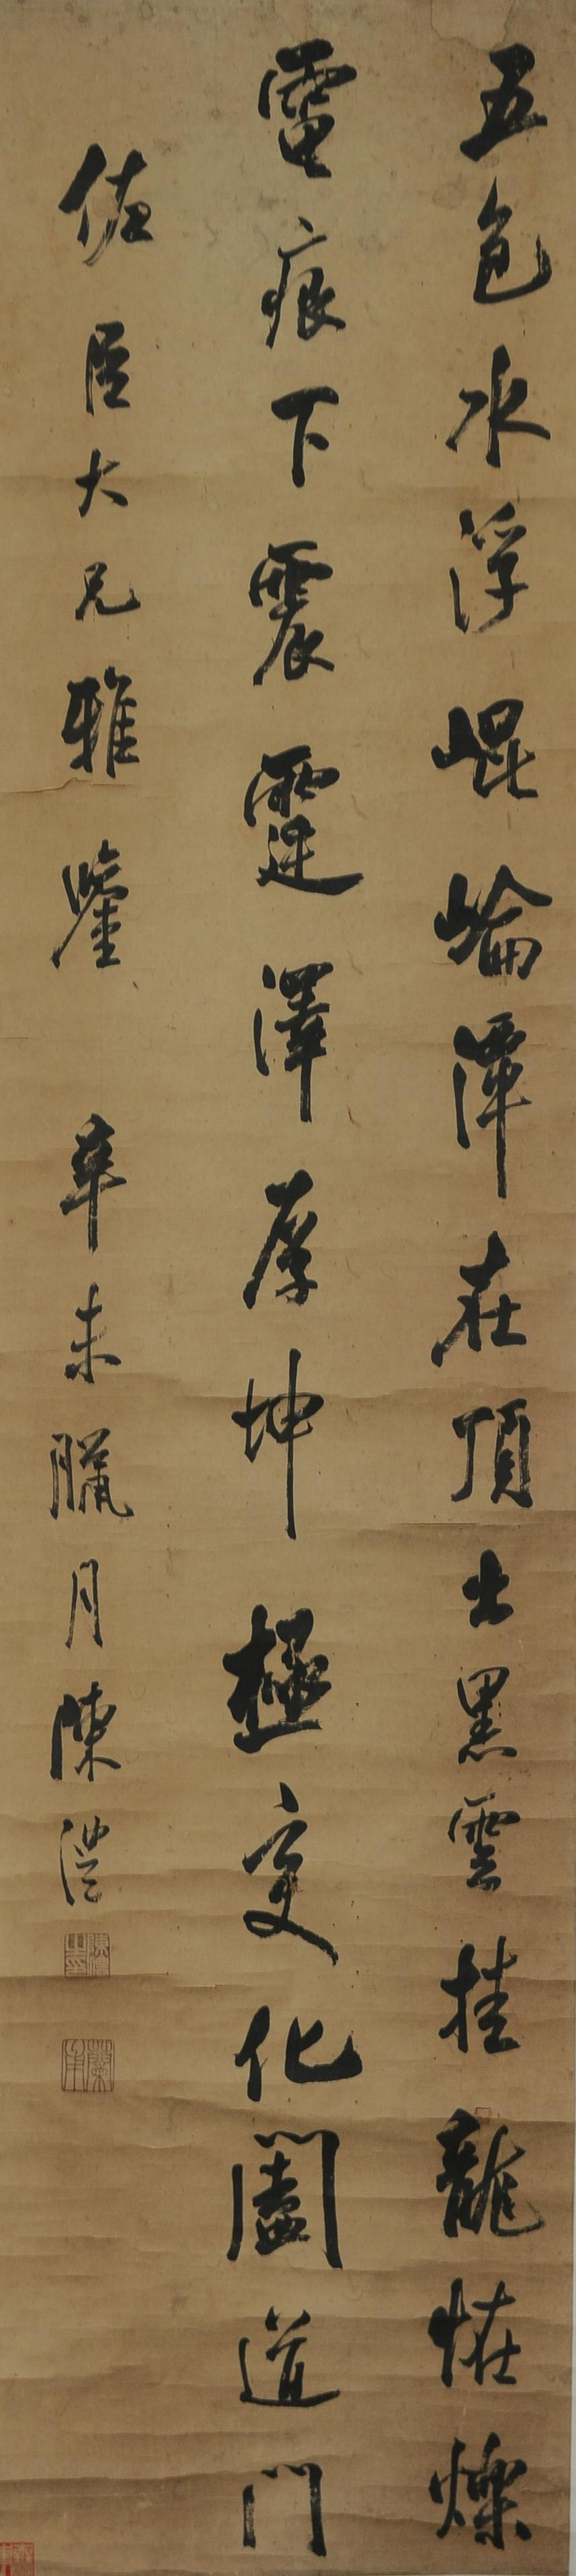 五色水浮崐崘潭在頂出黑雲挂龍恠爍
電痕下震霆澤厚坤極变化闔道門
佐臣大兄雅鑒 辛未臘月陳澧